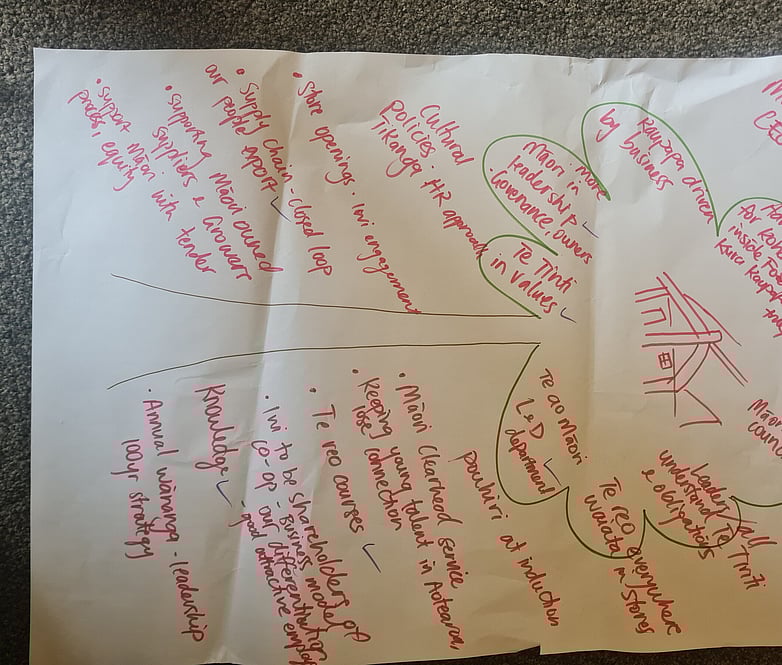 • Support māori with tender
process, equity
• Supporting Māori owned
suppliers & Growers
• Supply chain - closed loop
our people export
• Store openings. Iwi engagement
Cultural
Policies. HR approach
Tikanga
Māori in more
leadership
Governance, owners
Te Tiriti
in values
Kaupapa driven
by business
inside
Kura
Te ao Māori
L&D
department
pōwhiri at induction
• Māori Clearhead Service
• Keeping young talent in Aotearoa,
lose connection
• Te reo courses
• Iwi to be shareholders of
co-op - Business model
- our differentiation
- good attractive
Knowledge
• Annual wānanga - leadership
100yr strategy
Te reo everywhere
waiata in stores
Leaders / all
understand Te Tiriti
& obligations
Māori